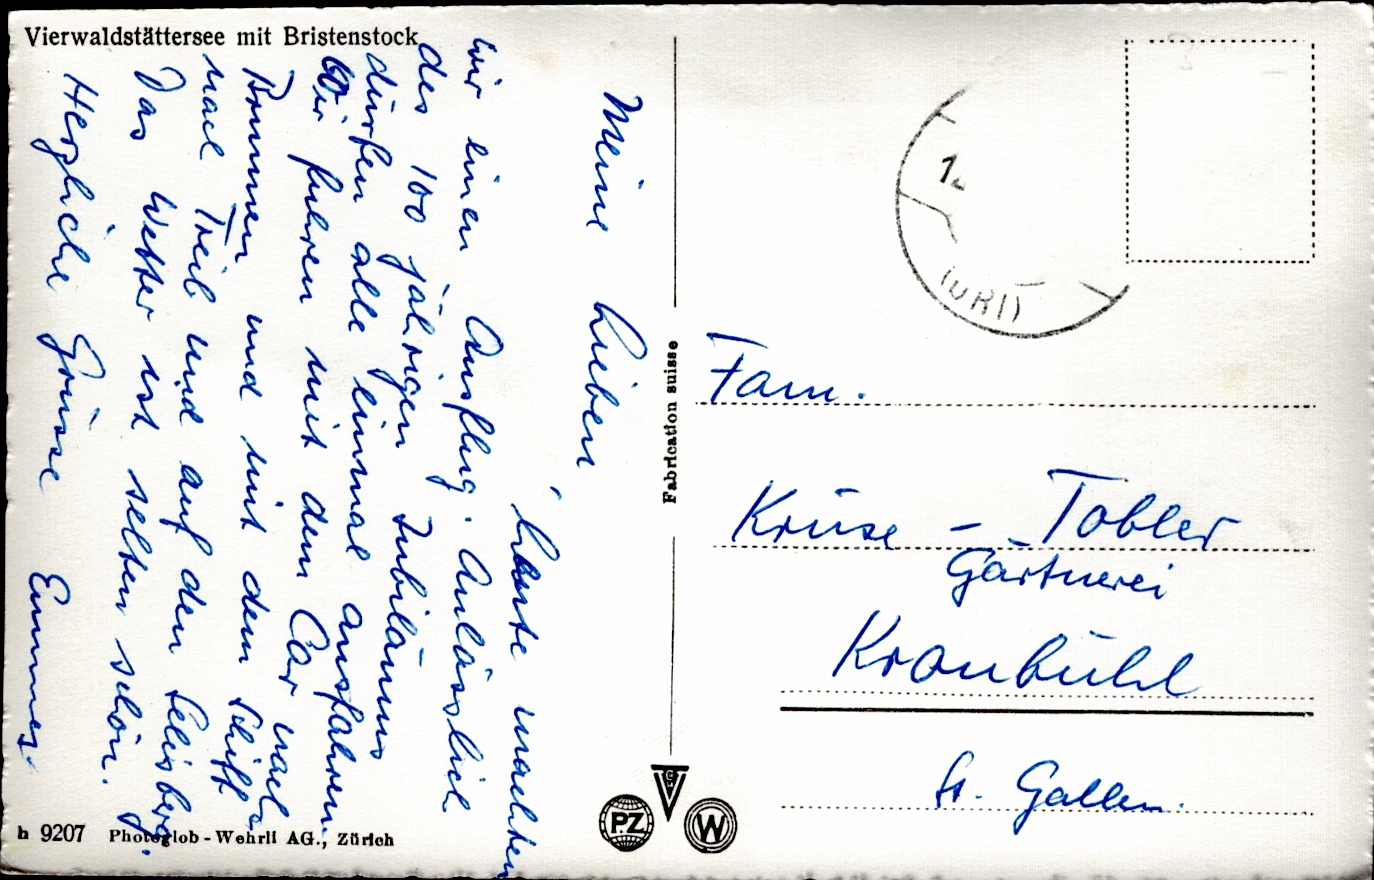 Vierwaldstättersee mit Bristenstock
Meine Lieben,
heute machten
wir einen Ausflug. Anlässlich
des 100 jährigen Jubiläums
dürfen alle einmal ausfahren.
Wir fuhren mit dem Car nach
Brunnen und mit dem Schiff
nach Treib und auf den Selisberg.
Das Wetter ist selten schön.
Herzliche Grüsse
h 9207 Photoglob-Wehrli AG., Zürich
Fabrication suisse
PZ
W
(URI)
Fam.
Krüse - Tobler
Gärtnerei
Kronbühl
St. Gallen.